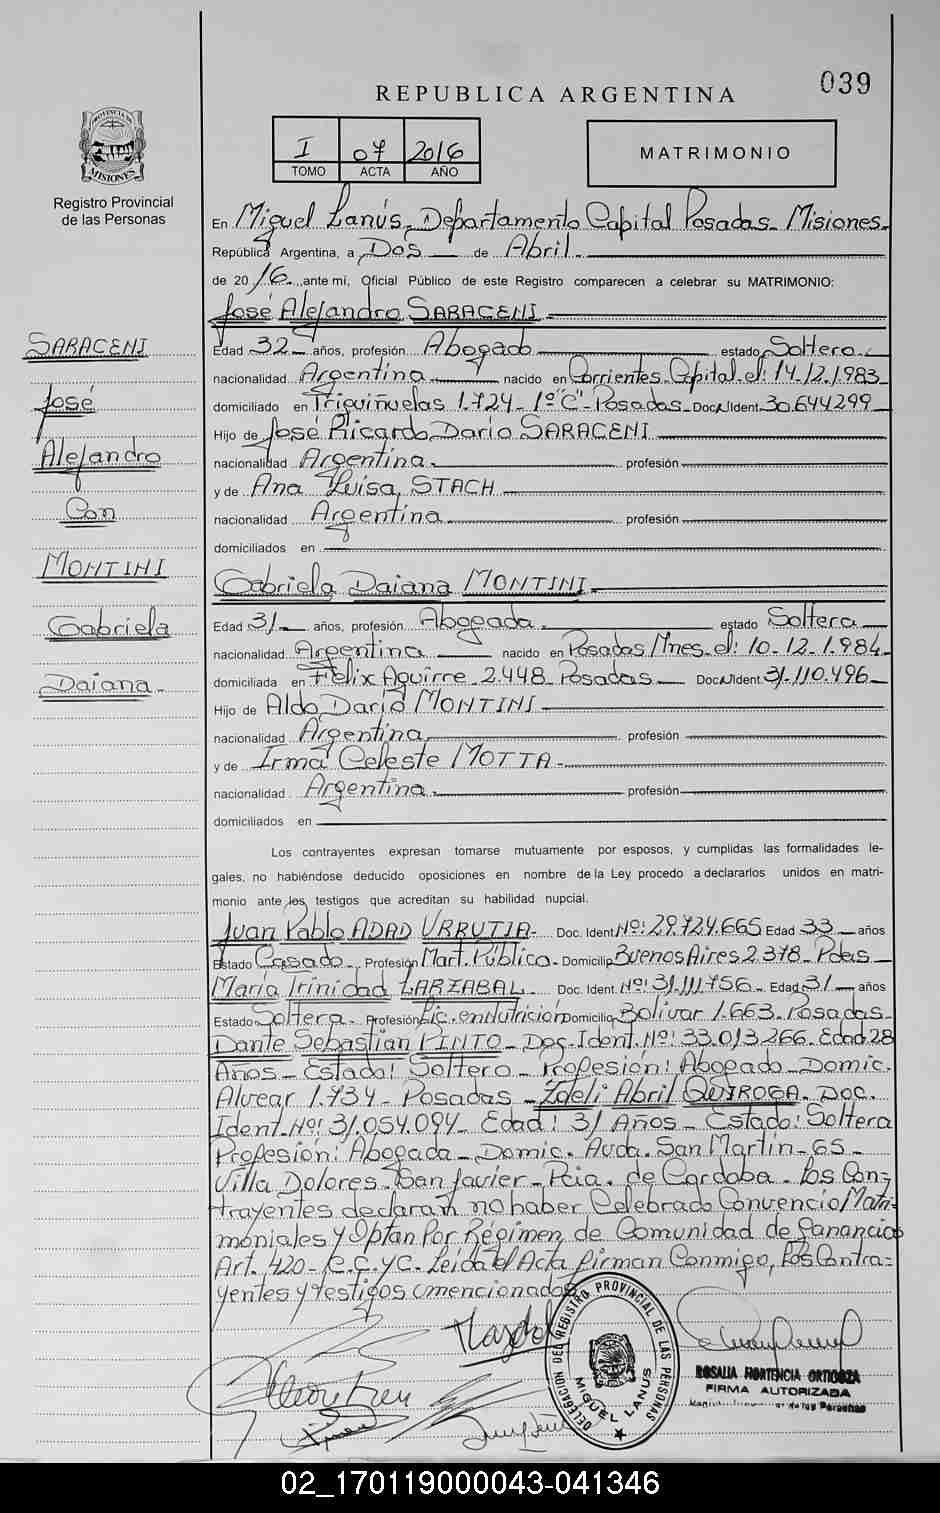 039
REPUBLICA ARGENTINA
I 07 2016
TOMO ACTA AÑO
MATRIMONIO
PROVINCIA DE
MISIONES
Registro Provincial
de las Personas
En Miguel Lanús, Departamento Capital Posadas - Misiones.
República Argentina, a Dos de Abril.
de 2016 ante mí, Oficial Público de este Registro comparecen a celebrar su MATRIMONIO:
José Alejandro SARACENI
Edad 32 años, profesión Abogado estado Soltero
nacionalidad Argentina nacido en Corrientes Capital el: 14-12-1.983
domiciliado en Triquiñuelas 1.724 - 1º "C" - Posadas Doc. N. Ident. 30.644299
Hijo de José Ricardo Darío SARACENI
nacionalidad Argentina. profesión
y de Ana Luisa, STACH
nacionalidad Argentina profesión
domiciliados en
Gabriela Daiana MONTINI
Edad 31 años, profesión Abogada estado Soltera
nacionalidad Argentina nacido en Posadas Mnes. el: 10-12-1.984
domiciliada en Felix Aguirre 2.448 Posadas Doc. N. Ident. 31.110.496
Hijo de Aldo Darío MONTINI
nacionalidad Argentina profesión
y de Irma Celeste MOTTA
nacionalidad Argentina. profesión
domiciliados en
SARACENI
José
Alejandro
Con
MONTINI
Gabriela
Daiana
Los contrayentes expresan tomarse mutuamente por esposos, y cumplidas las formalidades le-
gales, no habiéndose deducido oposiciones en nombre de la Ley procedo a declararlos unidos en matri-
monio ante los testigos que acreditan su habilidad nupcial.
Juan Pablo ADAD URRUTIA - Doc. Ident. Nº: 29.724.665 Edad 33 años
Estado Casado. Profesión Mart. Público. Domicilio Buenos Aires 2.378 - Pdas
María Trinidad LARZABAL. Doc. Ident. Nº: 31.111.756 - Edad 31 años
Estado Soltera - Profesión Lic. en Nutrición Domicilio Bolívar 1.663 - Posadas -
Dante Sebastian PINTO - Doc. Ident. Nº: 33.013.266. Edad 28
Años - Estado: Soltero - Profesión: Abogado - Domic.
Alvear 1.734 - Posadas - Abril QUIROGA. Doc.
Ident. Nº: 31.054.094 - Edad: 31 Años - Estado: Soltera
Profesión: Abogada - Domic. Avda. San Martín - 65 -
Villa Dolores - San Javier - Pcia. de Cordoba. Los Con-
trayentes declaran no haber Celebrado Convencio Matri-
moniales y Optan Por Régimen de Comunidad de Ganancias
Art. 420 - C.C. y C. Leida el Acta firman Conmigo, los Contra-
yentes y testigos mencionados
DELEGACION DEL REGISTRO PROVINCIAL DE LAS PERSONAS
MIGUEL LANUS
ROSALIA HORTENCIA ORTIGOZA
FIRMA AUTORIZADA
de las Personas
02_170119000043-041346